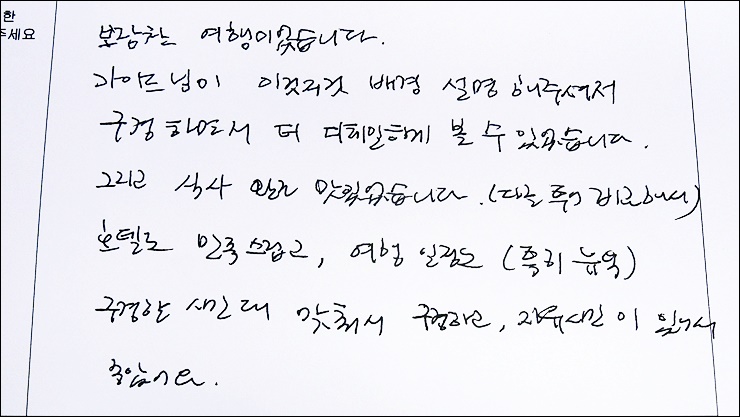 한
주세요
보람찬 여행이었습니다.
가이드님이 이것저것 배경 설명 해주셔서
구경하면서 더 디테일하게 볼 수 있었습니다.
그리고 식사 완전 맛있었습니다. (다들 후기 비교해서)
호텔도 만족스럽고, 여행 일정도 (특히 뉴욕)
구경한 시간대 맞춰서 구경하고, 자유시간이 있어서
좋았어요.